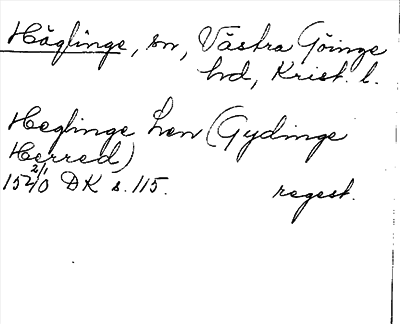 Häglinge, sn, Västra Göinge
hd, Krist. l.
Heglinge Len (Gydinge
Herred)
2/1
1540 DK s. 115. regest.